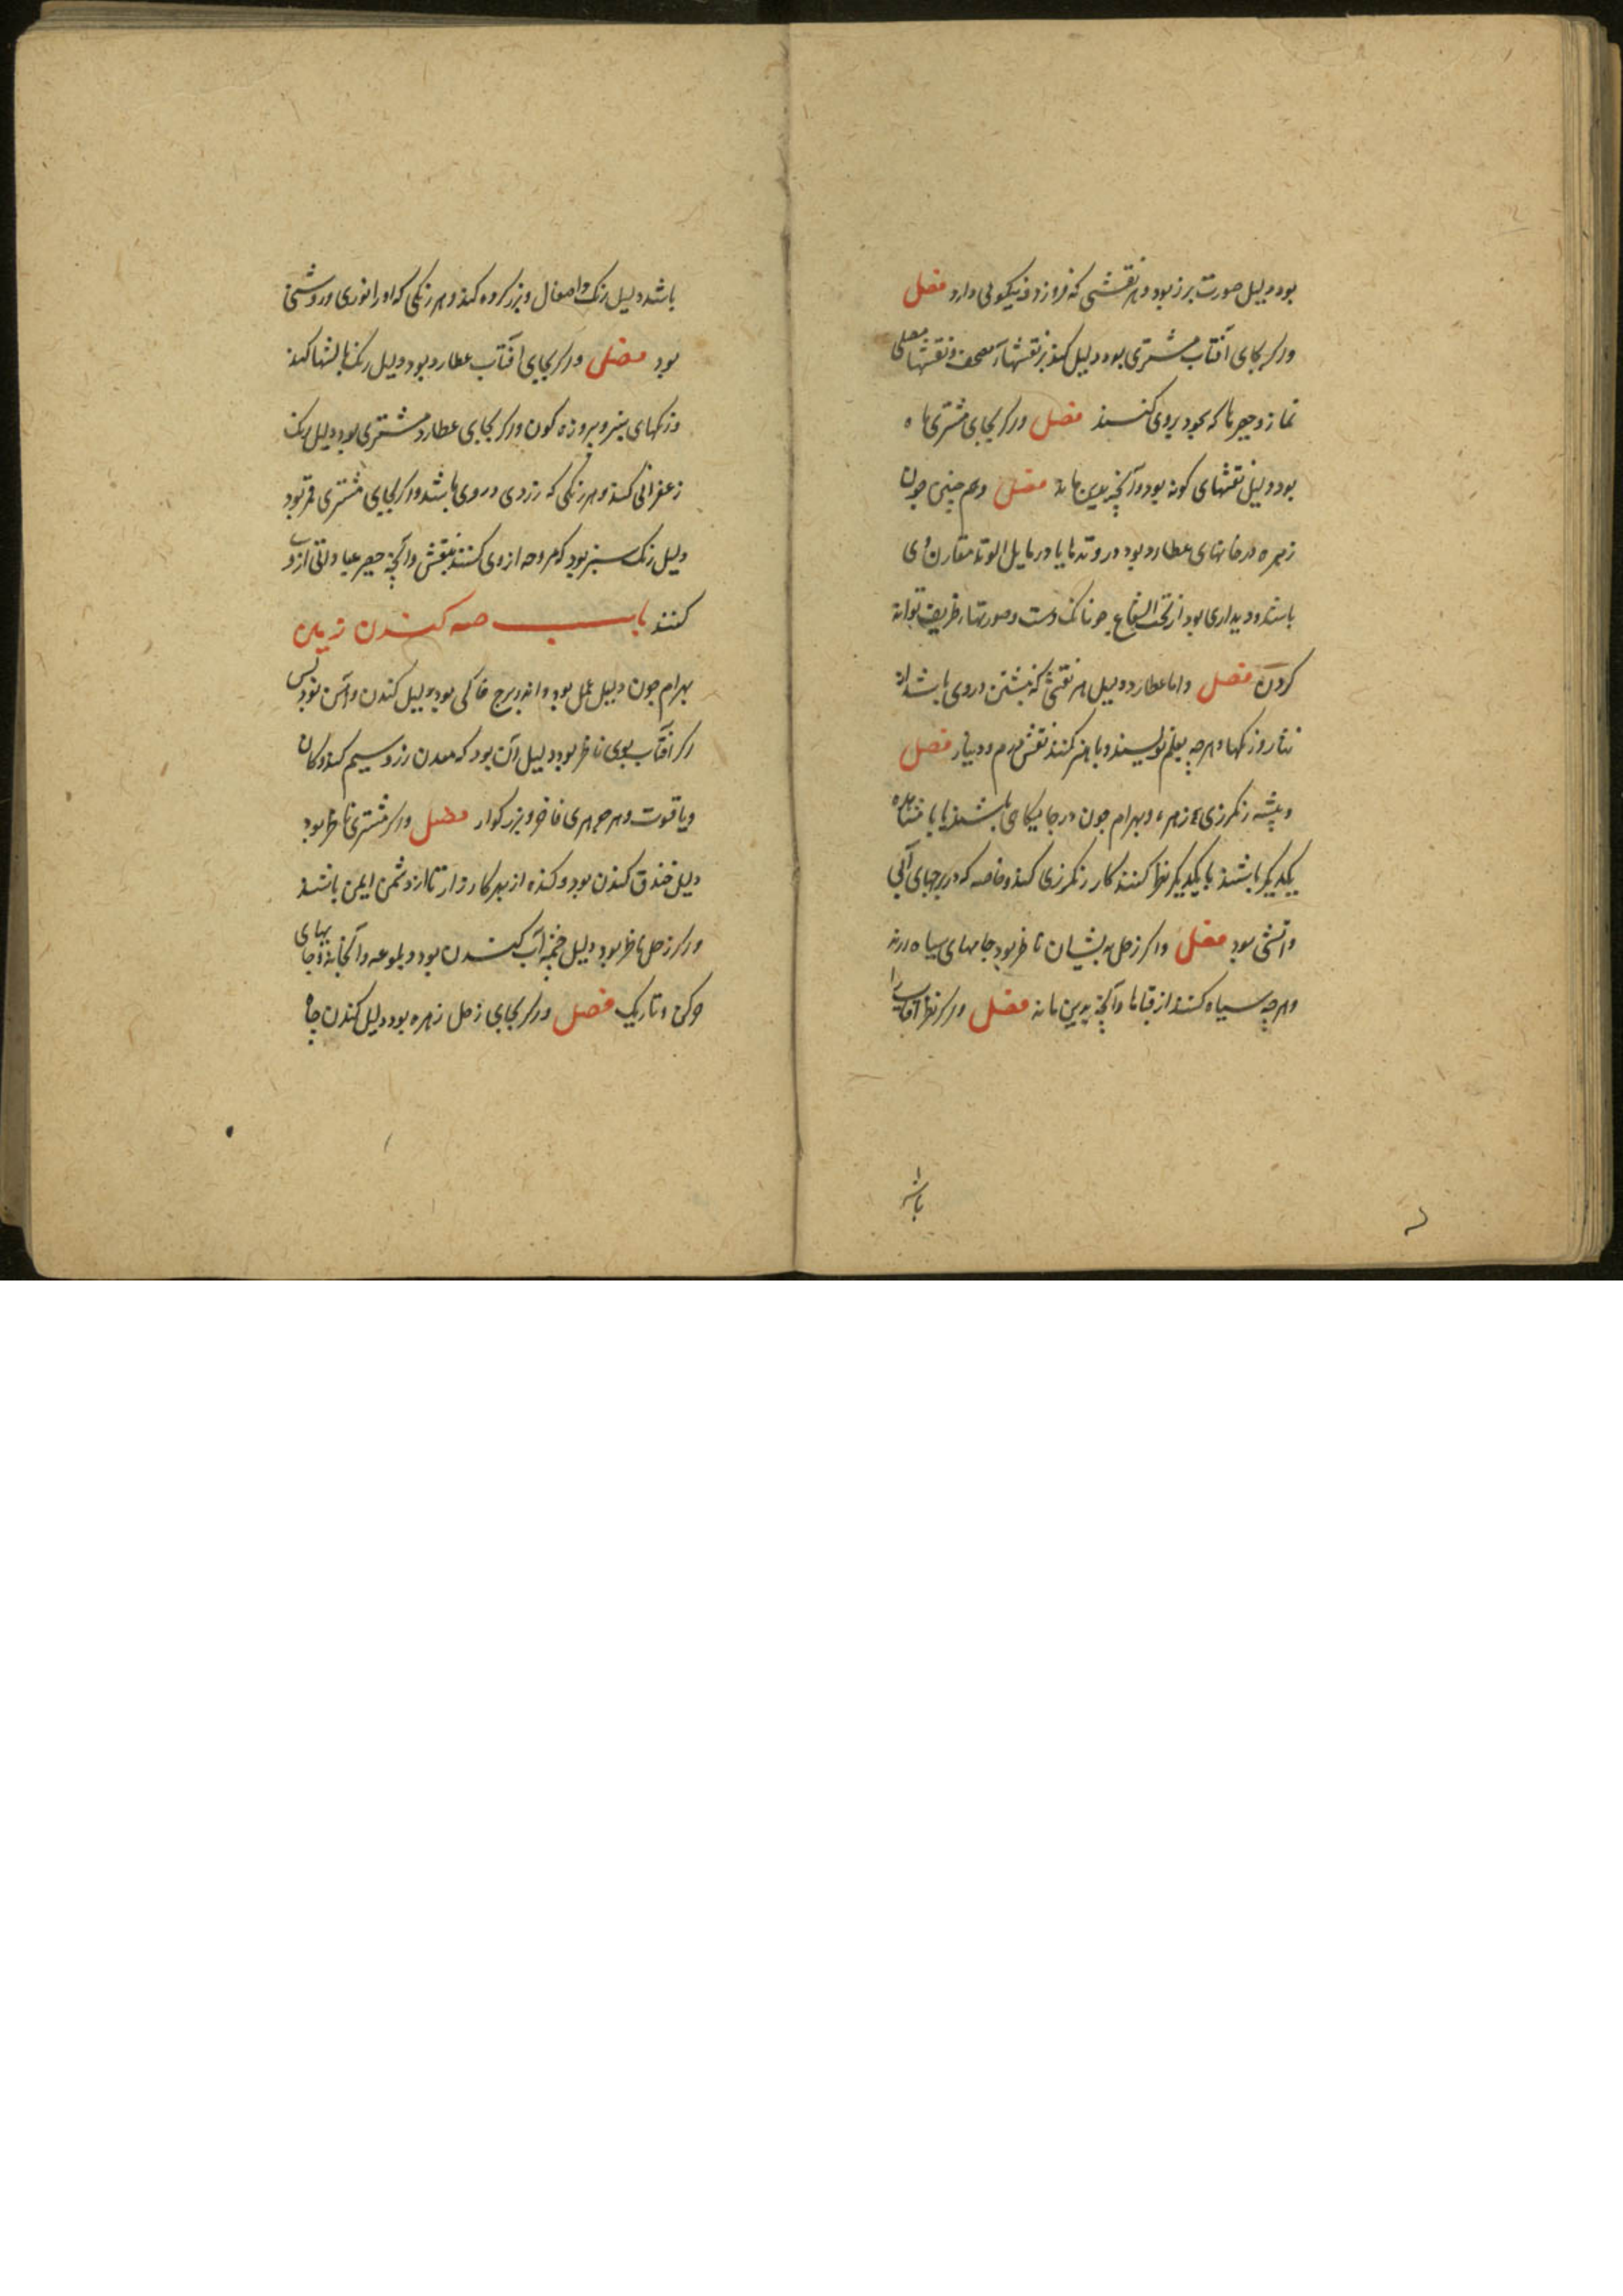 بود دلیل صورت برز بود و هر نقشی که فروز و نیکویی دارد فصل
ور کر بجای آفتاب مشتری بود دلیل کند بر نقشهاء مصحف و نقشها مصلی
نماز و چیزها که سجود بروی کنند فصل ور کر بجای مشتری ماه
بود دلیل نقشهای کونه بود و آنچه بدین ماند فصل و هم چنین چون
زهره در خانهای عطارد بود در وتدها یا در مایل الوتد مقارن وی
باشد و دیداری بود از تحت الشعاع چونانک دست و صورتهاء ظریف تواند
کردن فصل و اما عطارد دلیل هر نقشی که نبشتن در وی باشد از
و هرچه بقلم نویسند و با هنر کنند نقش درم و دینار فصل
و پیشه رنکرزی زهره و بهرام چون در جایکاهی باشند یا با
یکدیکر باشند با یکدیکر نظر کنند کار رنکرزی کند و خاصه که در برجهای آبی
و آتشی بود فصل و اکر زحل بدیشان ناظر بود جامهای سیاه
و هرچه سیاه کنند از قباها و آنچه بدین ماند فصل ور کر نظر آفتاب را
باشد
باشد دلیل رنک و بزرکروه کند و هر رنکی که او را نوری و روشنی
بود فصل ور کر بجای آفتاب عطارد بود دلیل رنک بالشها کند
و رنکهای سبز و پیروزه کون ور کر بجای عطارد مشتری بود دلیل رنک
زعفرانی کند و هر رنکی که زردی در وی باشد و اکر بجای مشتری قمر بود
دلیل رنک سبز بود که مروحه از وی کنند بنقش و آنچه حصیر عبادانی از وی
کنند باب صه کندن زمین
بهرام چون دلیل عمل بود و اندر برج خاکی بود دلیل کندن و آهن بود پس
اکر آفتاب بوی ناظر بود دلیل آن بود که معدن زر و سیم کند و کان
و یاقوت و هر جوهری فاخر و بزرکوار فصل ور کر مشتری ناظر بود
دلیل خندق کندن بود و کنده از بهر کارزار تا از دشمن ایمن باشند
ور کر زحل ناظر بود دلیل خنبه آب کندن بود و بلوعه و آبخانه و جایهای
و تاریک فصل ور کر بجای زحل زهره بود دلیل کندن چاه